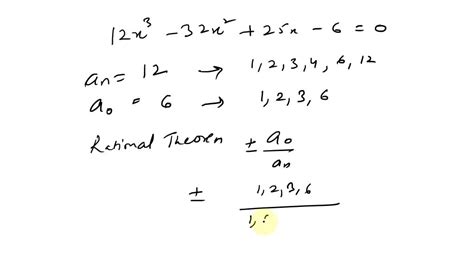 12x³ - 32x² + 25x - 6 = 0
an = 12 → 1, 2, 3, 4, 6, 12
a₀ = 6 → 1, 2, 3, 6
Rational Theorem ± a₀
an
± 1, 2, 3, 6
1,